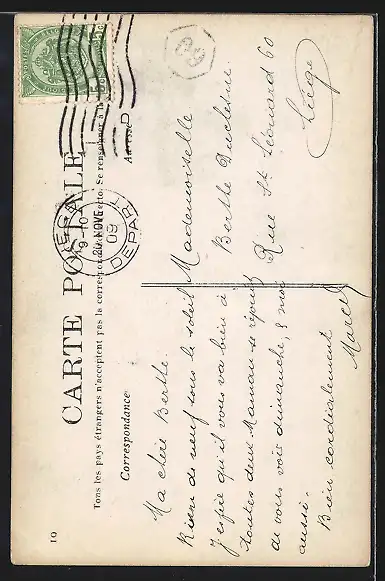 CARTE POSTALE
Tous les pays étrangers n'acceptent pas la correspondance au recto. Se renseigner à la
Correspondance
Adresse
LIÉGE
9-10
20 NOVE
09
DÉPART
Ma chère Berthe.
Rien de neuf sous le soleil
j'espère qu'il vous va bien à
toutes deux Maman se réjouit
de vous voir dimanche, & moi
aussi.
Bien cordialement
Marcel
Mademoiselle
Berthe Duchesne.
Rue St Léonard 60
Liége
10